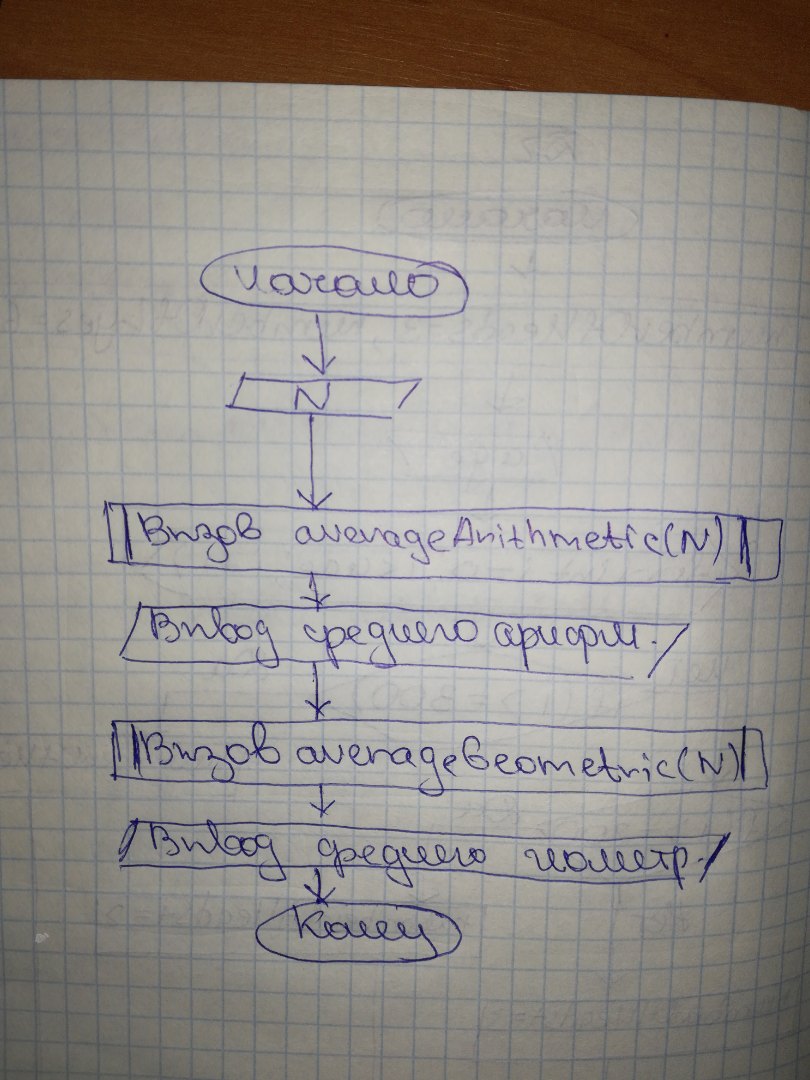 начало
N
Вызов averageArithmetic(N)
Вывод среднего арифм.
Вызов averageGeometric(N)
Вывод среднего геометр.
Конец